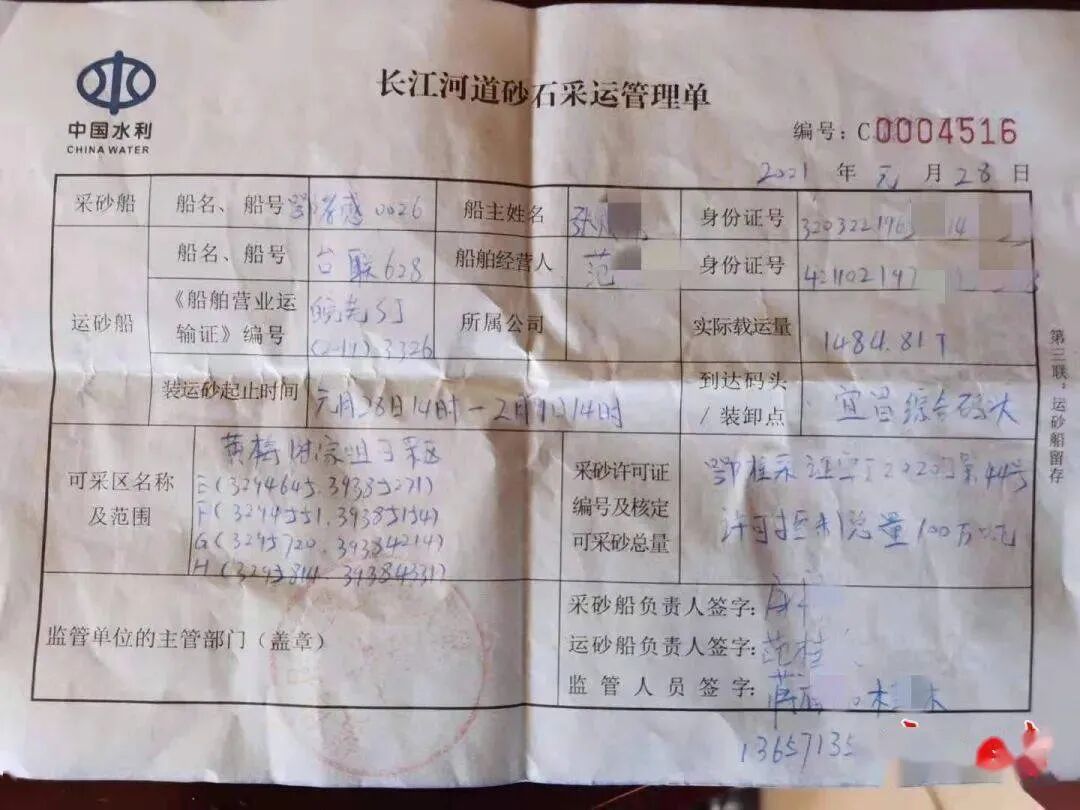 中国水利
CHINA WATER
长江河道砂石采运管理单
编号：C0004516
2021 年 元 月 28 日
采砂船 船名、船号 鄂孝感0026 船主姓名 张 身份证号 320322196 14
运砂船 船名、船号 台联628 船舶经营人 范 身份证号 421102197
《船舶营业运输证》编号 皖 SJ (2-17).3326 所属公司 实际载运量 1484.81T
装运砂起止时间 元月28日14时-2月1日14时 到达码头/装卸点 宜昌综合码头
可采区名称及范围 黄梅 可采区
E(3294645.39385271)
F(3294551.39385154)
G(3295720.39384214)
H(3295814.39384331)
采砂许可证编号及核定可采砂总量 鄂 采证字[2020]第44号
许可 总量100万吨
采砂船负责人签字：
运砂船负责人签字：范桂
监管人员签字：蒋
监管单位的主管部门（盖章）
13657135
第三联：运砂船留存